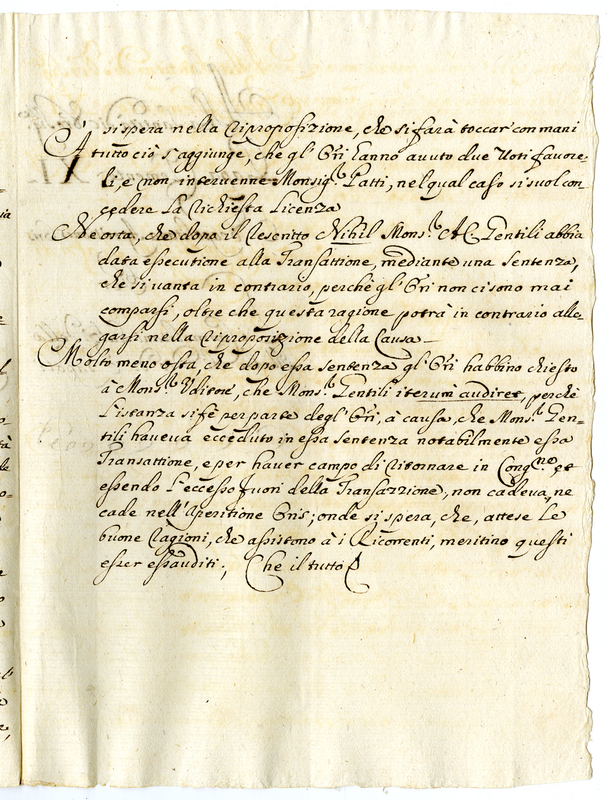 si spera nella riproposizione, che si farà toccar con mani
A tutto ciò s'aggiunge, che gl' Ori hanno avuto due Voti favore-
li, e non intervenne Monsig.r Patti, nel qual caso si suol con
cedere La richiesta Licenza
Ne osta, che dopo il rescritto Nihil Mons.r A.C. Gentili abbia
data essecutione alla Transattione, mediante una sentenza,
che si vanta in contrario, perche gl' Ori non ci sono mai
comparsi, oltre che questa ragione potrà in contrario alle-
garsi nella riproposizione della Causa_
Molto meno osta, che dopo essa sentenza gl' Ori habbino chiesto
à Mons.r Uditore, che Mons.r Gentili iterum audiret, perche
l'istanza si fè per parte degl' Ori, à causa, che Mons.r Gen-
tili haveva ecceduto in essa sentenza notabilmente essa
Transattione, e per haver campo di ritornare in Cong.ne, et
essendo l'eccesso fuori della Transazzione, non cadeva, ne
cade nell' Aperitione Oris; onde si spera, che, attese Le
buone ragioni, che assistono à i Ricorrenti, meritino questi
esser essauditi; Che il tutto